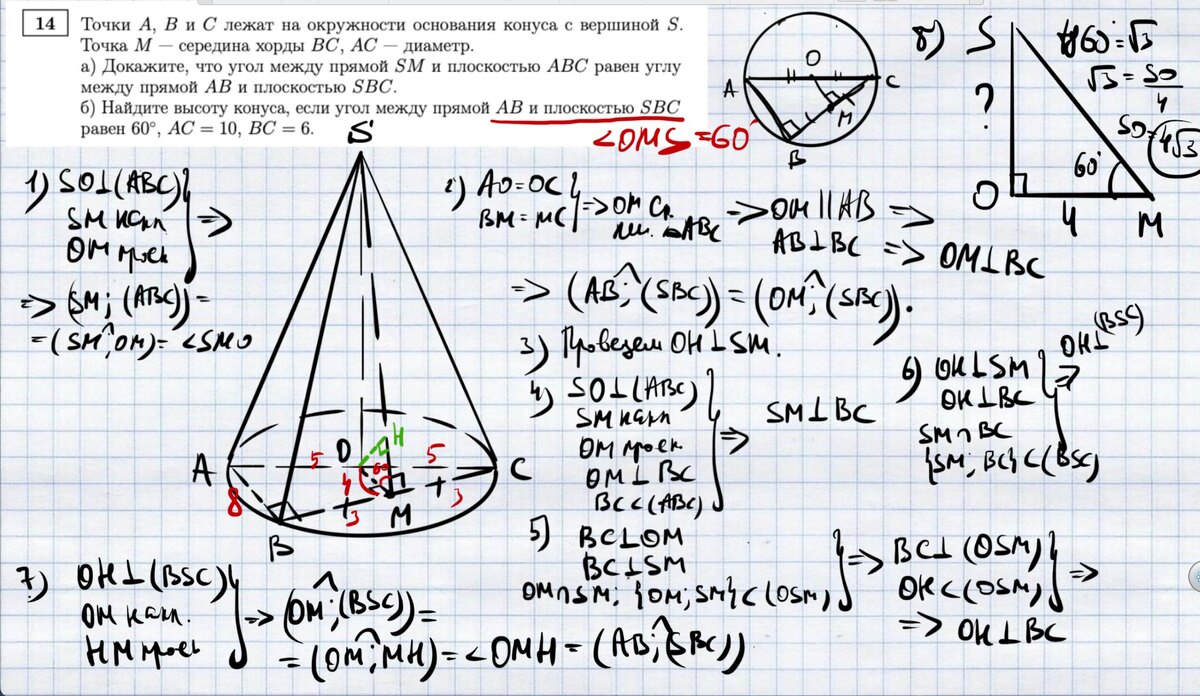 14
Точки A, B и C лежат на окружности основания конуса с вершиной S.
Точка M — середина хорды BC, AC — диаметр.
а) Докажите, что угол между прямой SM и плоскостью ABC равен углу
между прямой AB и плоскостью SBC.
б) Найдите высоту конуса, если угол между прямой AB и плоскостью SBC
равен 60°, AC = 10, BC = 6.
∠OMS = 60°
A
O
C
M
B
б)
S
?
O
4
M
60°
tg60°=√3
√3 = SO/4
SO=4√3
S
A
B
C
O
H
M
5
5
8
4
60
3
3
1) SO⊥(ABC)
SM накл
OM проек
=>
=> (SM; (ABC)) =
= (SM; OM) = ∠SMO
2) AO=OC
BM=MC
=> OM ср. лин. △ABC
=> OM||AB =>
AB⊥BC => OM⊥BC
=> (AB; (SBC)) = (OM; (SBC)).
3) Проведем OH⊥SM.
4) SO⊥(ABC)
SM накл
OM проек
OM⊥BC
BC⊂(ABC)
=> SM⊥BC
5) BC⊥OM
BC⊥SM
OM∩SM; {OM; SM}⊂(OSM)
=> BC⊥(OSM)
OH⊂(OSM)
=>
=> OH⊥BC
6) OH⊥SM
OH⊥BC
SM∩BC
{SM; BC}⊂(BSC)
=> OH⊥(BSC)
7) OH⊥(BSC)
OM накл.
HM проек
=> (OM; (BSC)) =
= (OM; MH) = ∠OMH = (AB; (SBC))